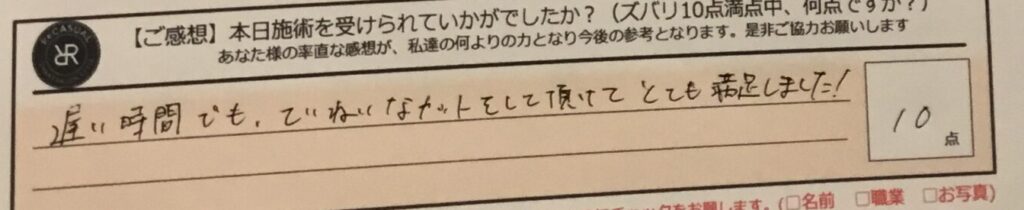 【ご感想】本日施術を受けられていかがでしたか？（ズバリ10点満点中、何点ですか？）
あなた様の率直な感想が、私達の何よりの力となり今後の参考となります。是非ご協力お願いします
遅い時間でも、ていねいなカットをして頂けてとても満足しました！
10
点
チェックをお願します。(□名前 □職業 □お写真)